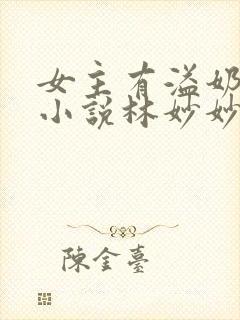 女主有溢奶
小說林妙妙
陳金臺